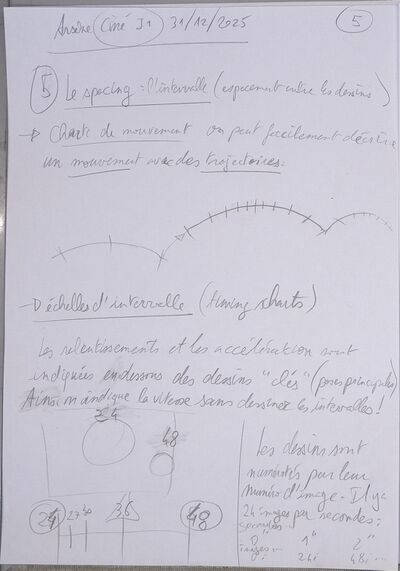 Arsène Ciné J1 31/12/2025 5
5 Le spacing = l'intervalle (espacement entre les dessins)
→ Charte de mouvement on peut facilement décrire
un mouvement avec des trajectoires:
→ D'échelles d'intervalle (timing charts)
Les ralentissements et les accélération sont
indiquées en dessous des dessins "clés" (poses principales)
Ainsi on indique la vitesse sans dessiner les intervalles!
24
48
24 27 30 36 48
Les dessins sont
numérotés par leur
numéro d'image. Il y a
24 images par secondes:
secondes...
0" 1" 2"
images...
0i 24i 48i...